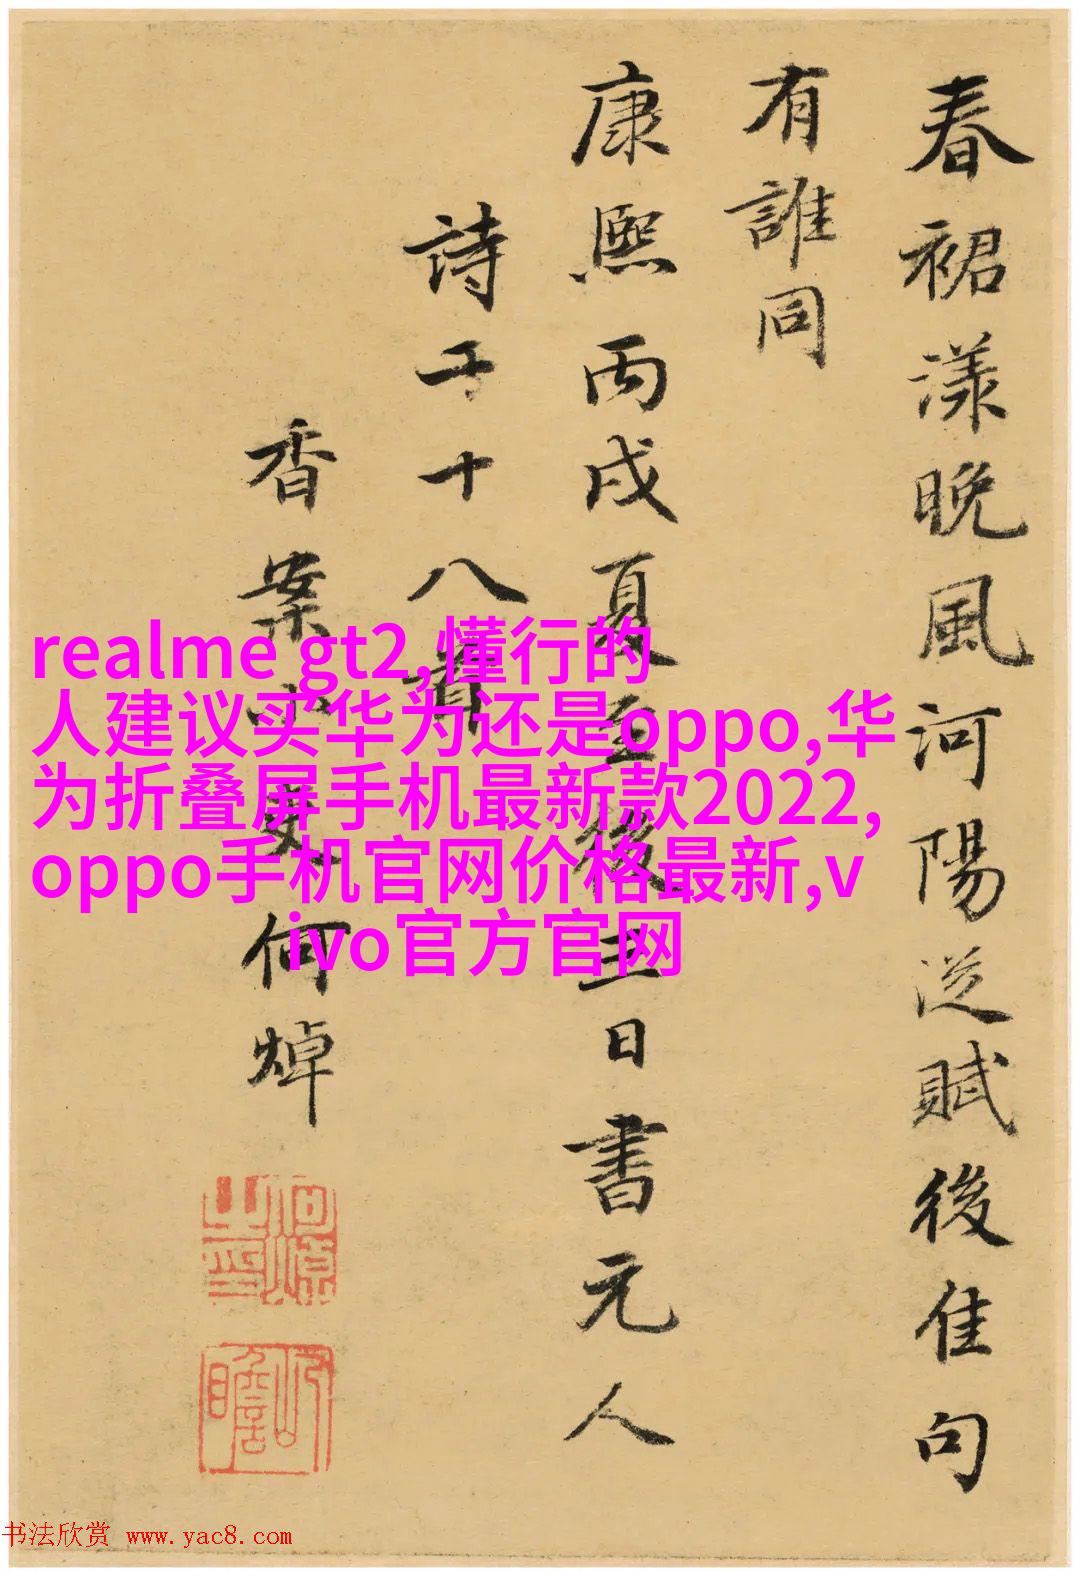 春裙漾晚風河陽從賦後佳句
有誰同
康熙丙戌夏至後三日書元人
詩十八首
香案小吏何焯
何焯之印
屺瞻
realme gt2,懂行的
人建议买华为还是oppo,华
为折叠屏手机最新款2022,
oppo手机官网价格最新,v
ivo官方官网
书法欣赏 www.yac8.com